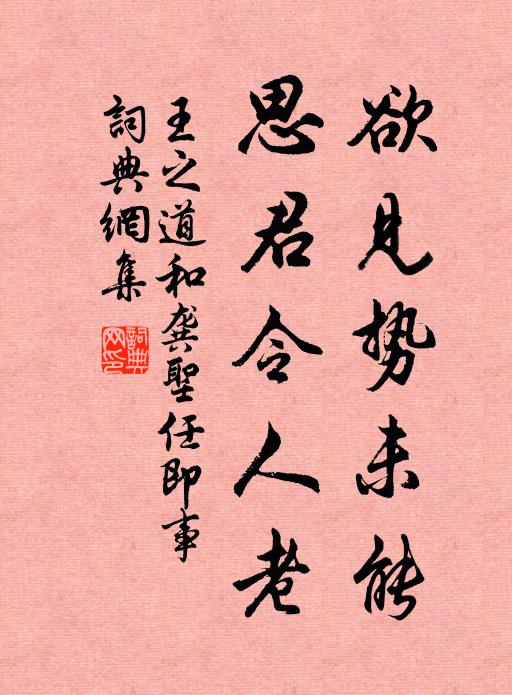 欲見勢未能
思君令人老
王之道和龔聖任即事
詞典網集
詞典網印